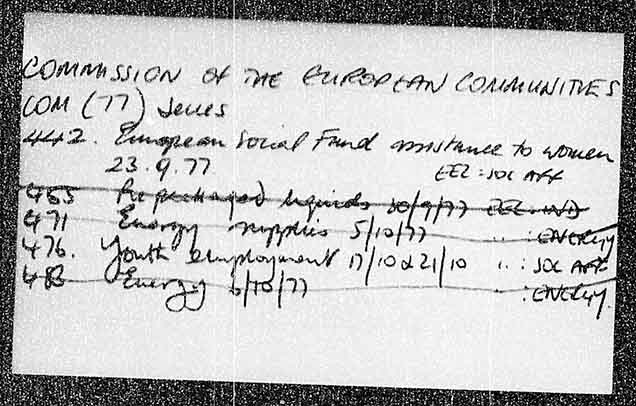 COMMISSION OF THE EUROPEAN COMMUNITIES
COM (77) series
442. European Social Fund assistance to women
23.9.77 EEC: SOC AFF
465 Prepackaged liquids 30/9/77 EEC: IND
471 Energy supplies 5/10/77 " : ENERGY
476. Youth employment 17/10 & 21/10 " : SOC AFF
483 Energy 6/10/77 " : ENERGY.